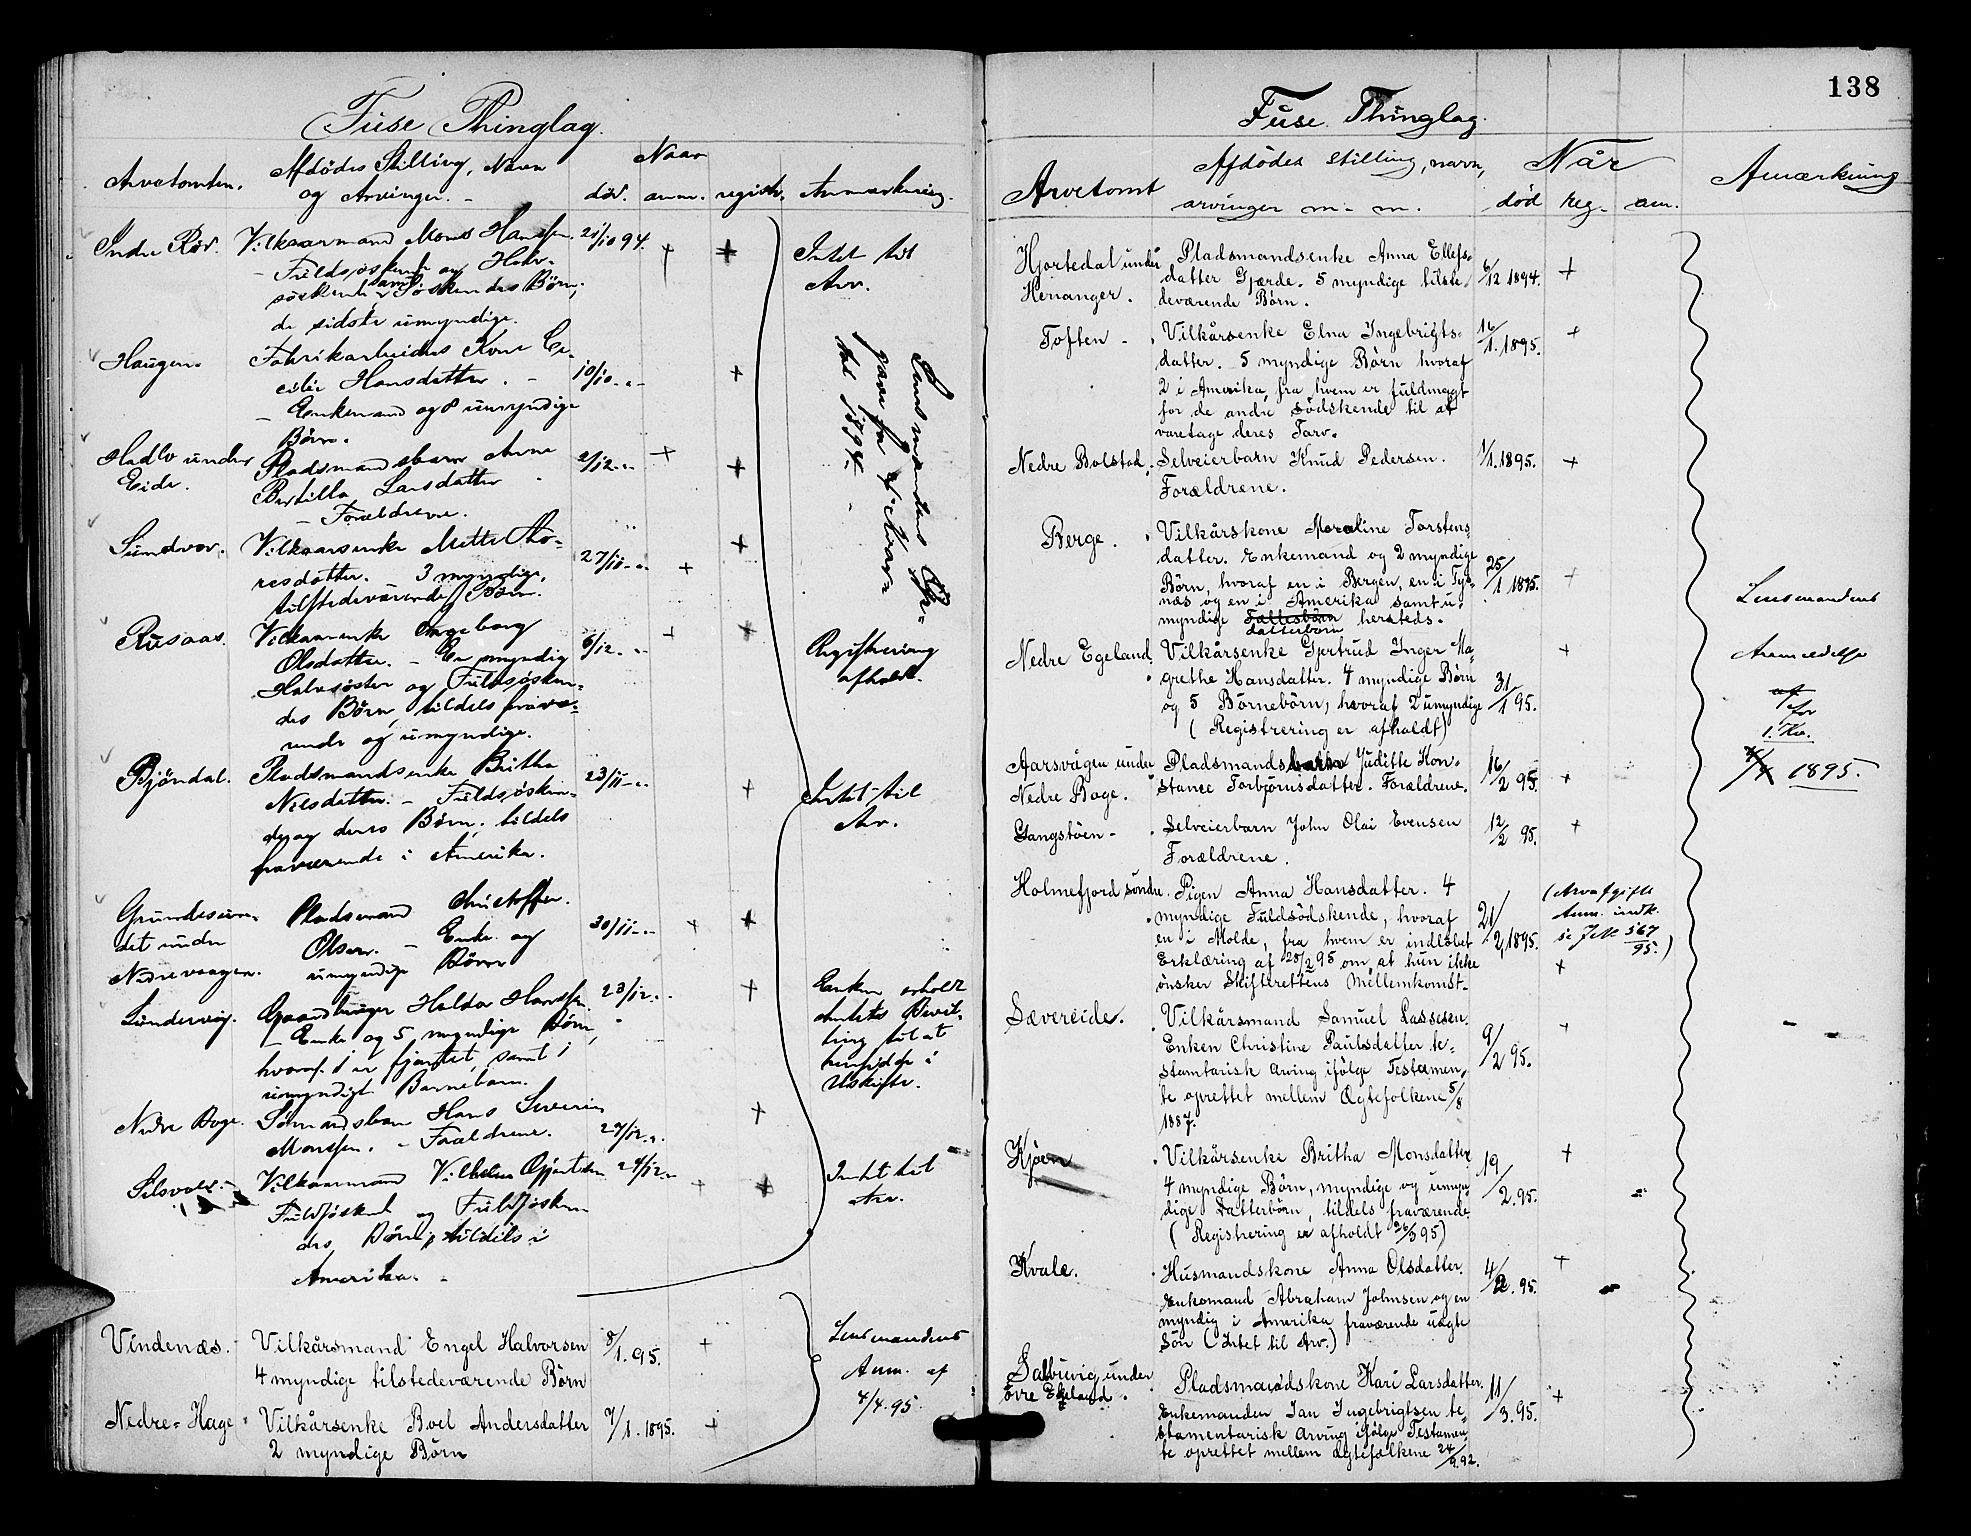 Fuse Thinglag.
Arvetomten.
Afdödes Stilling, Navn
og Arvinger. -
Naar
död. anm. registr. Anmærkning.
Indre Röv. Vilkaarmand Mons Hanssen. 21/10 94. + +
- Fuldsöskende og Halv-
söskende samt Söskendes Börn,
de sidste umyndige.
Intet til
Arv.
Haugen. Fabrikarbeiders Kone Ce-
cilie Hansdatter. - 10/10 - " - +
- Enkemand og 8 umyndige
Börn.
Hadlv under
Eide.
Pladsmandsbarn Anne 2/12 - " + +
Bertille Larsdatter
- Forældrene.
Lensmandens Op-
gave for 4. Kvar-
tal 1894. -
Sundvor. Vilkaarsenke Mette Tho-
resdatter. 3 myndige, 27/11 - " + +
tilstedeværende Börn.
Rusaas. Vilkaarsenke Ingeborg
Olsdatter. - En myndig 6/12 - " + +
Halvsöster og Fuldsösken-
des Börn, tildels fravæ-
rende og umyndige.
Registrering
afholdt.
Bjöndal. Pladsmandsenke Britha
Nilsdatter. - Fuldsösken- 23/11 - " +
de og deres Börn, tildels
fraværende i Amerika.
Intet til
Arv.
det under
Nedrevaagen.
Pladsmand Christoffer
Olsen. - Enke og 30/11 - " + +
umyndige Börn
Sundervig. Gaardbruger Haldor Hanssen 23/12 - " +
- Enke og 5 myndige Börn,
hvoraf 1 er fjantet, samt 1
umyndigt Barnebarn.
Enken erholdt
Amtets Bevil-
ling til at
hensidde i
Uskifte.
Nedre Hage. Sömandsbarn Hans Severin +
Monssen. - Forældrene. 29/12 - "
Vilkaarmand Vilhelm 24/12 - " + +
Fuldsöskende og Fuldsösken-
des Börn, tildels i
Amerika. -
Intet til
Arv.
Vindenæs. - Vilkårsmand Engel Halvorsen 8/1. 95. +
4 myndige tilstedeværende Börn
Lensmandens
Anm. af
4/4. 95.
Nedre-Hage Vilkårsenke Boel Andersdatter 7/1. 1895. +
2 myndige Börn
138
Fuse Thinglag.
Arvetomt
Afdödes stilling, navn,
arvinger m. m.
Når
död reg. am.
Anmærkning
Hjortedal under
Henanger.
Pladsmandsenke Anna Ellefs-
datter Gjærde. 5 myndige tilste- 6/12 1894. +
deværende Börn.
Toften - Vilkårsenke Elna Ingebrigts- 16/1. 1895. +
datter. 5 myndige Börn hvoraf
2 i Amerika, fra hvem er fuldmagt
for de andre Södskende til at
varetage deres Tarv.
Nedre Bolstad. Selveierbarn Knud Pedersen. 1/1. 1895. +
Forældrene.
Berge. Vilkårskone Maraline Torstens-
datter. Enkemand og 2 myndige
Börn, hvoraf en i Bergen, en i Tys- 25/1 1895. +
næs og en i Amerika samt u-
myndige
datterbörn hersteds.
Lensmandens
Anmeldelse
af
for
1. Kv.
4/4 1895.
Nedre Egeland. Vilkårsenke Gjertrud Inger Ma- +
grethe Hansdatter. 4 myndige Börn
og 5 Börnebörn, hvoraf 2 umyndige 31/1 95.
(Registrering er afholdt)
Aarsvågen under
Nedre Bage.
Pladsmandsbarn Juditte Kon- 16/2 95. +
stance Torbjörnsdatter. Forældrene.
Gangstöen - Selveierbarn John Olai Evensen 12/2 95. +
Forældrene.
Holmefjord söndre. Pigen Anna Hansdatter. 4
myndige Fuldsödskende, hvoraf 21/2 1895.
en i Molde, fra hvem er indlöbet
Erklæring af 25/2 95 om at hun ikke
önsker Skifterettens Mellemkomst.
(Arveafgifts
Anm. indk.
se J. No 567/95.)
+
Sævereide. Vilkårsmand Samuel Lassesen. +
Enken Christine Paulsdatter te- 9/2 95.
stamtarisk arving ifölge Testamen-
te oprettet mellem Ægtefolkene 5/8
1887.
Kjöen Vilkårsenke Britha Monsdatter 19/2. 95. +
4 myndige Börn, myndige og umyn-
dige Datterbörn, tildels fraværende.
(Registrering er afholdt 26/3 95)
Kvale. Husmandskone Anna Olsdatter. 4/2. 95. +
Enkemand Abraham Johnsen og en
myndig i Amerika fraværende uægte
Sön (Intet til Arv.)
under
övre Egeland.
Pladsmandskone Kari Larsdatter. 11/3. 95. +
Enkemanden Jan Ingebrigtsen te-
stamentarisk arving ifölge Testamen-
te oprettet mellem Ægtefolkene 24/9. 92.